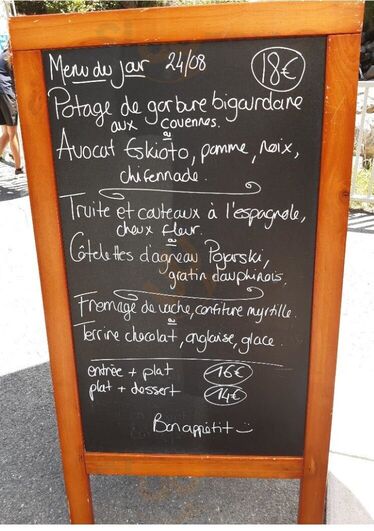 Menu du jour 24/08 18€
Potage de garbure bigourdane
aux couennes.
ou
Avocat Eskioto, pomme, noix,
chifennade.
Truite et couteaux à l'espagnole,
choux fleur.
ou
Côtelettes d'agneau Pojarski,
gratin dauphinois.
Fromage de vache, confiture myrtille.
ou
Terrine chocolat, anglaise, glace.
entrée + plat 16€
plat + dessert 14€
Bon appétit